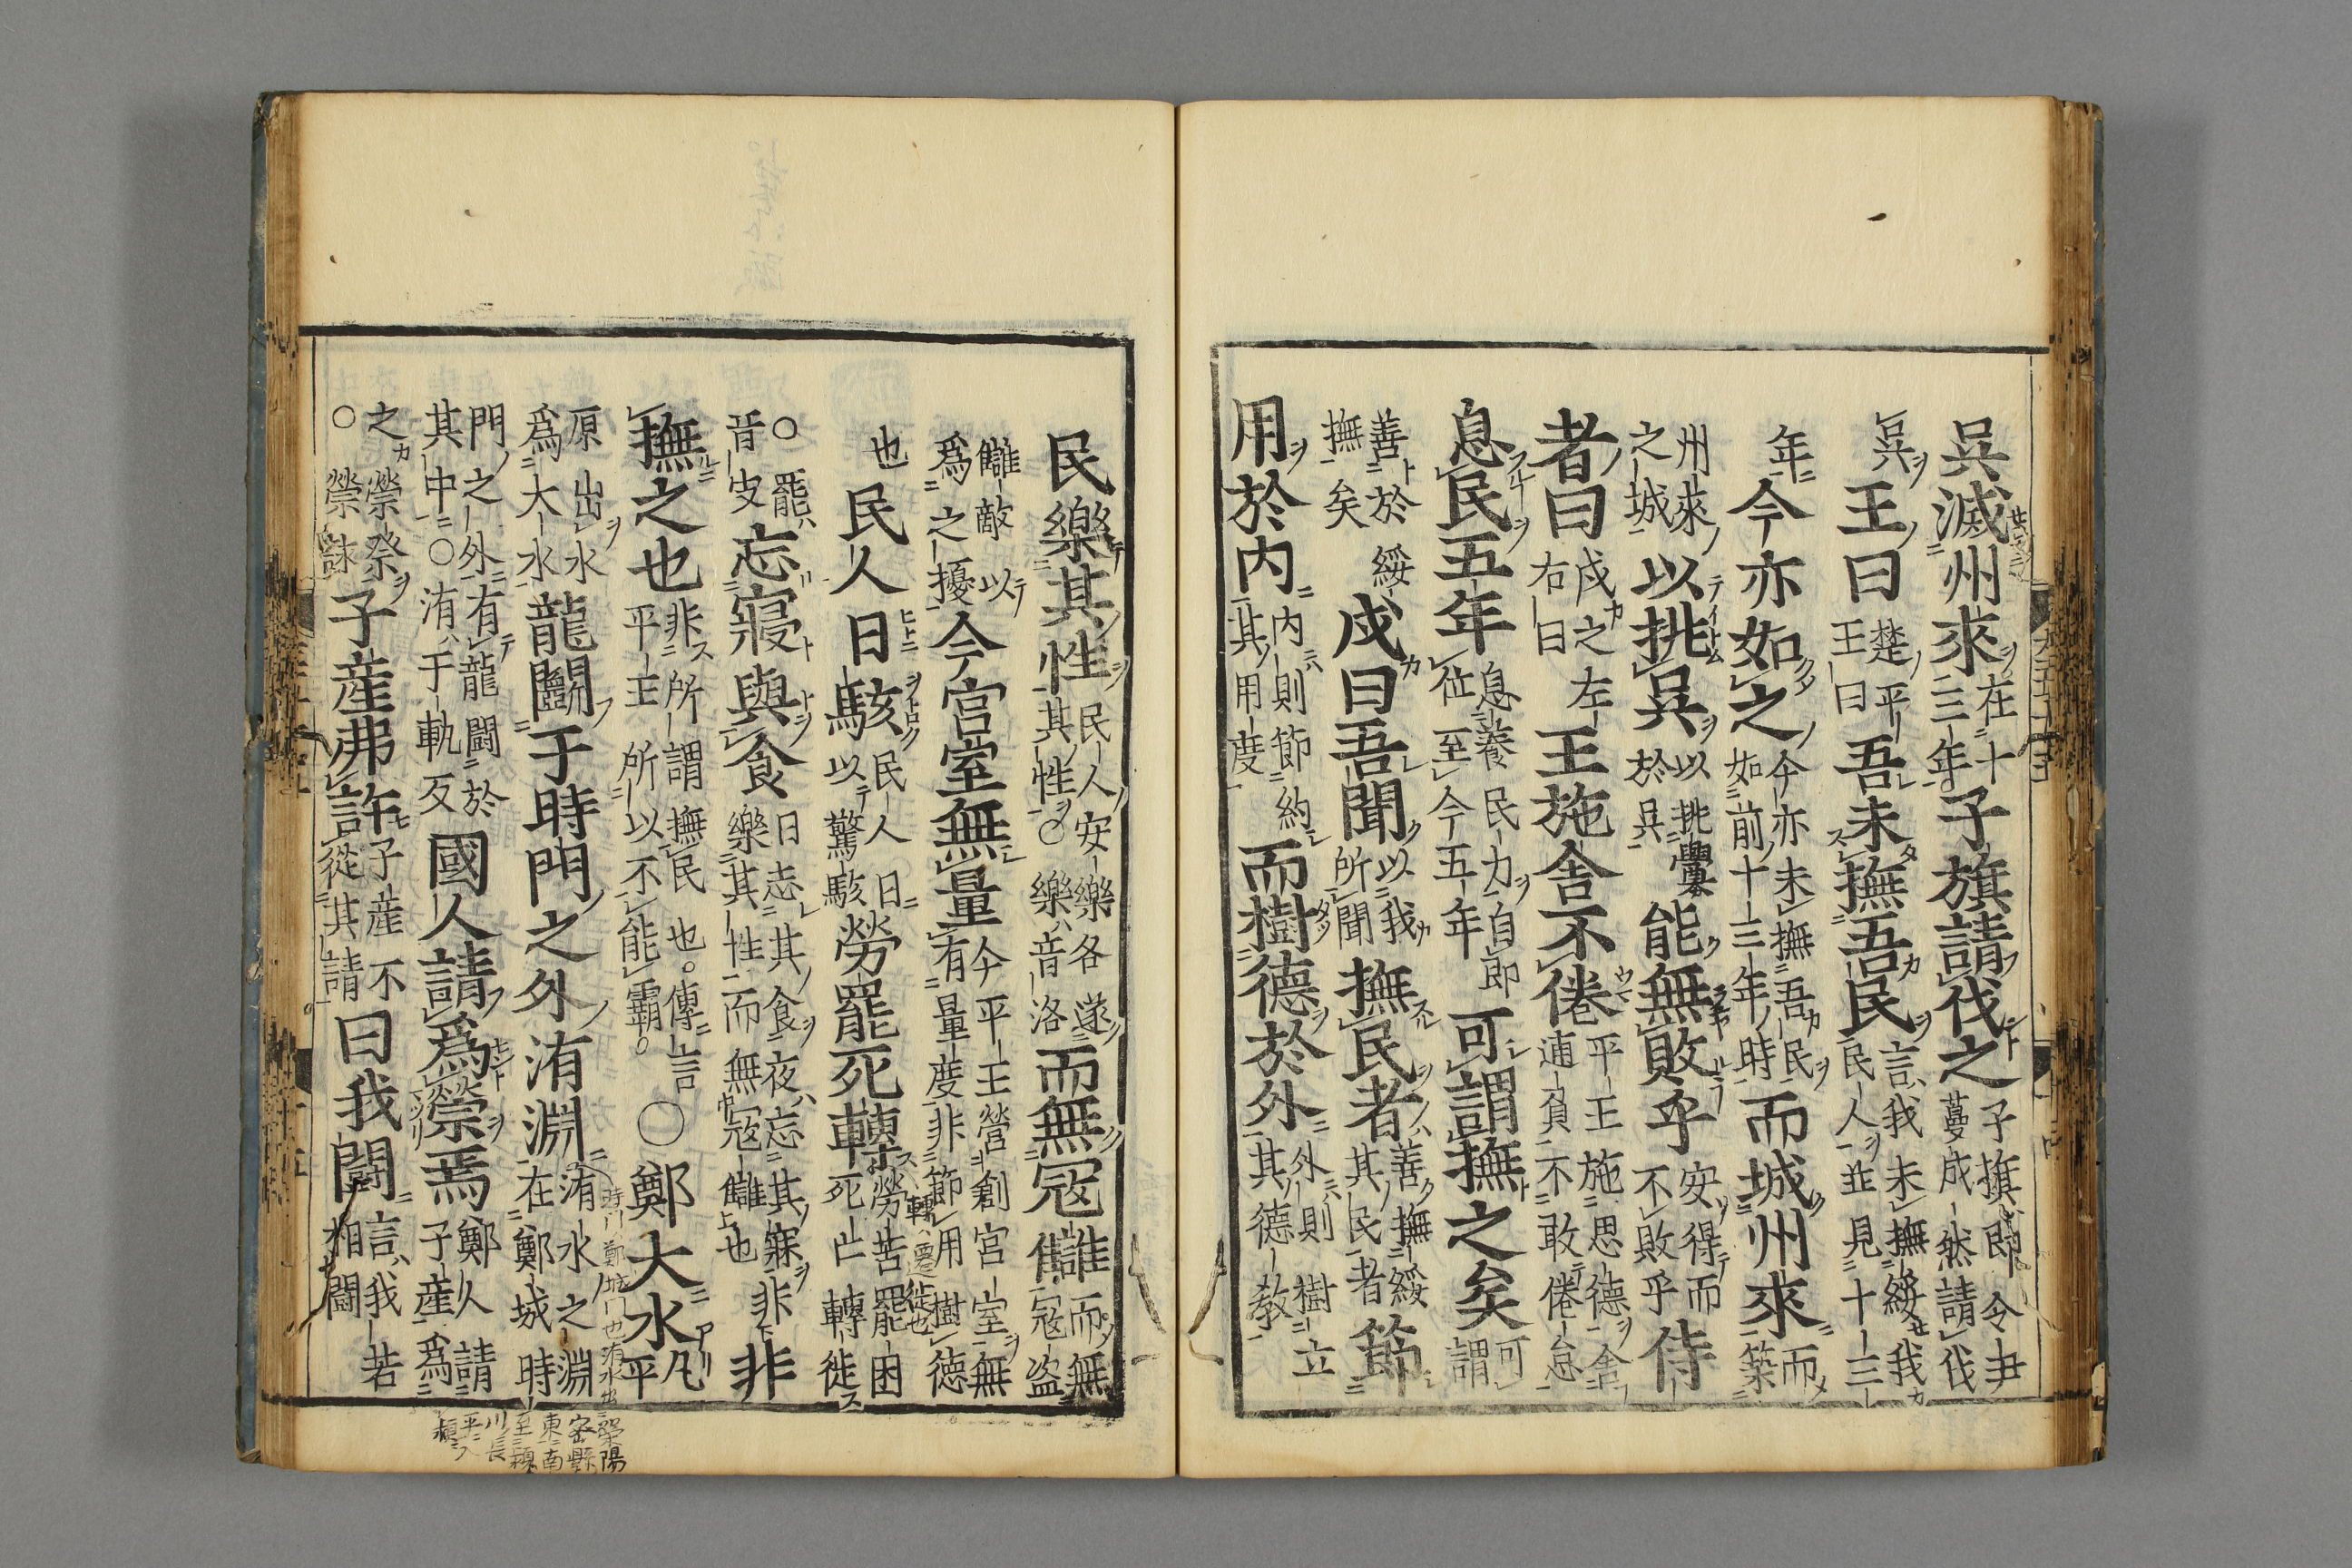 呉滅州來在十三年子旗請伐之子旗即令尹蔓成然請伐
呉王曰楚平王曰吾未撫吾民言我未撫綏我民人並見十三
年今亦如之今亦未撫吾民如前十三年時而城州來而築
州來之城以挑呉以挑釁於呉能無敗乎安得而不敗乎侍
者曰戍之左右曰王施舍不倦平王施思德舍逋負不敢倦怠
息民五年息養民力自即位至今五年可謂撫之矣可謂
善於撫矣綏戍曰吾聞以我所聞撫民者善撫綏其民者節
用於内内則節約其用度而樹德於外外則樹立其德教
民樂其性民人安樂其性○樂音洛各遂而無冦讎而無冦盗
讎敵以爲之擾今宮室無量今平王營創宮室無有量度非節用樹德
也民人日駭民人日以驚駭勞罷死轉勞苦罷困死亡轉徙
轉遷徙也
○罷音皮忘寢與食日忘其食夜忘其寐非樂其性而無冦讎也非
撫之也非所謂撫民也傳言平王所以不能霸○鄭大水凡平
原出水爲大水龍鬭于時門之外洧淵洧水之淵在鄭城時
時門鄭城門也洧水出滎陽密縣東南至潁川長平入潁
門之外有龍鬭於其中○洧于軌反國人請爲禜焉鄭人請子産爲
之禜祭○禜音詠子産弗許子産不從其請曰我鬭言我若相鬭